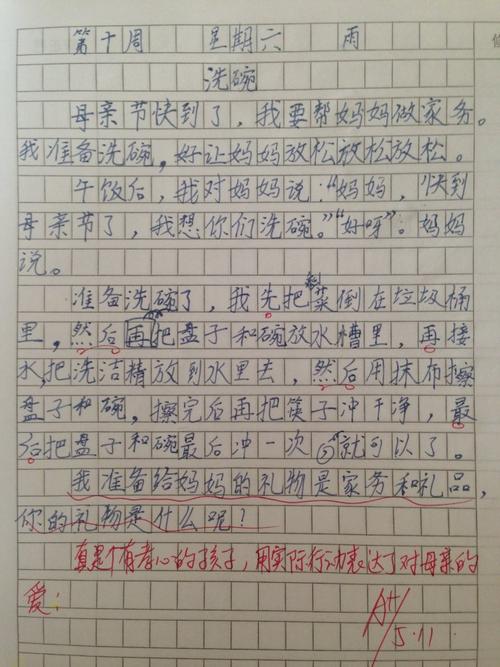 第十周 星期六 雨
洗碗
母亲节快到了，我要帮妈妈做家务。
我准备洗碗，好让妈妈放松放松放松。
午饭后，我对妈妈说：“妈妈，快到
母亲节了，我想你们洗碗。”“好呀”。妈妈
说。
准备洗碗了，我先把剩菜倒在垃圾桶
里，然后再把盘子和碗放水槽里，再接
水，把洗洁精放到水里去，然后用抹布擦
盘子和碗，擦完后再把筷子冲干净，最
后把盘子和碗最后冲一次就可以了。
我准备给妈妈的礼物是家务和礼品，
你的礼物是什么呢？
真是个有孝心的孩子，用实际行动表达了对母亲的
爱！
5.11